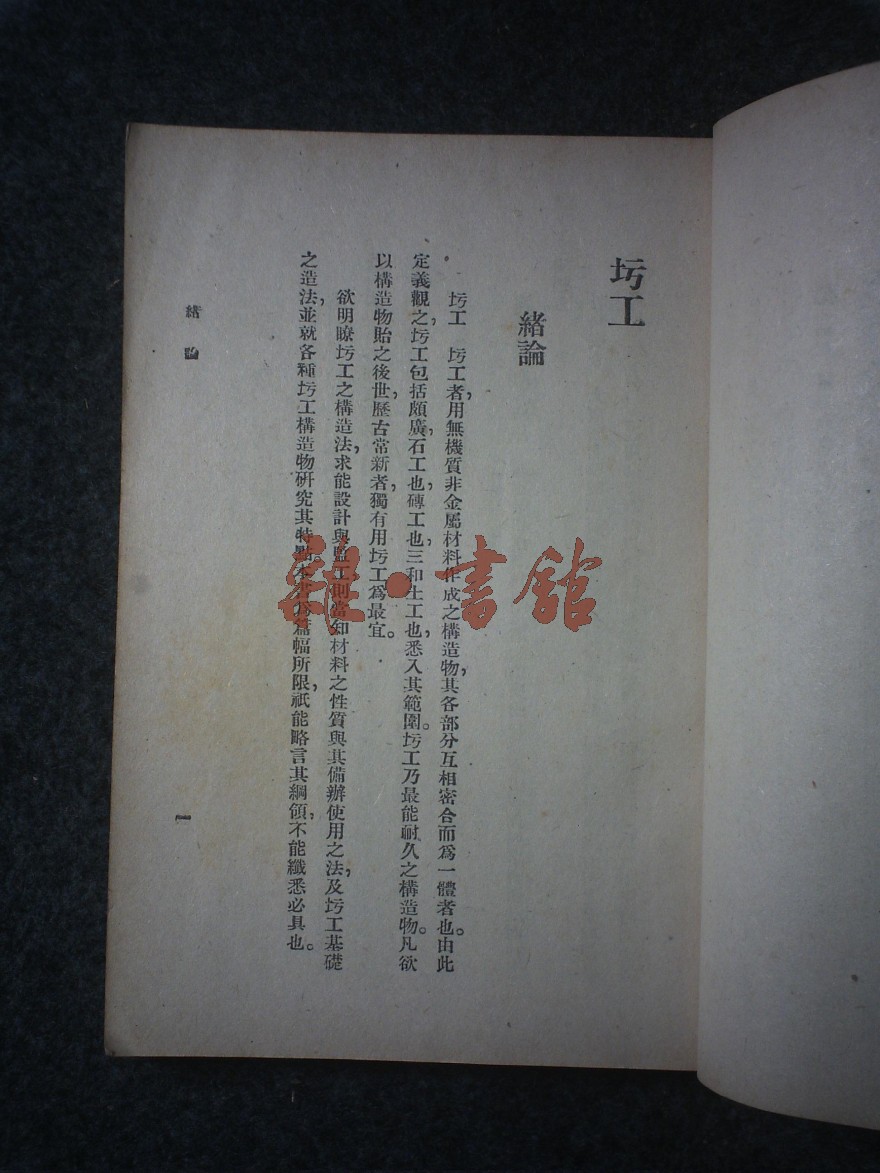 圬工
緒論
圬工　圬工者，用無機質非金屬材料作成之構造物，其各部分互相密合而爲一體者也。由此
定義觀之，圬工包括頗廣，石工也，磚工也，三和土工也，悉入其範圍。圬工乃最能耐久之構造物。凡欲
以構造物貽之後世，歷古常新者，獨有用圬工爲最宜。
欲明瞭圬工之構造法，求能設計與監工，則當知材料之性質與其備辦使用之法，及圬工基礎
之造法，並就各種圬工構造物研究其特點。本書爲篇幅所限，祇能略言其綱領，不能纖悉必具也。
緒論
一
雜·書館